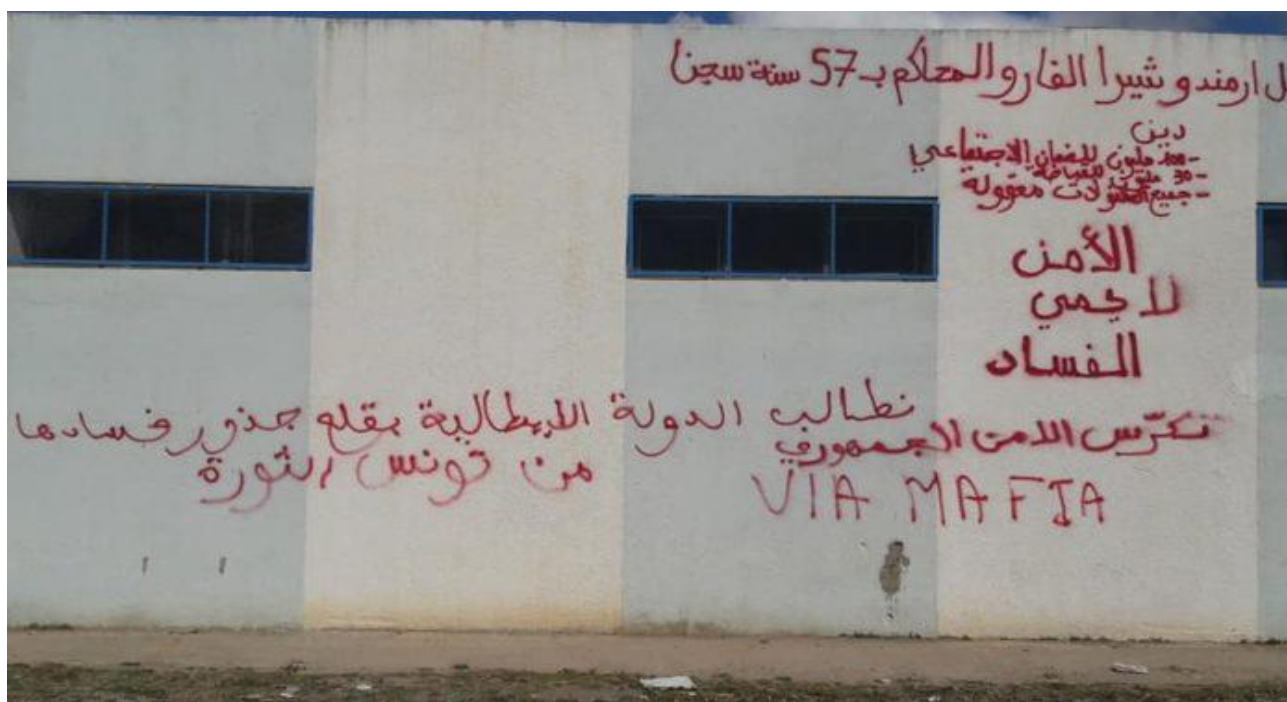 ل ارمندو ثيرا الفار والمحاكم بـ 57 سنة سجنا
دين
- 300 مليون للضمان الاجتماعي
- 30 مليون للقباضة
- جميع المنقولات معقولة
الأمن
لا يحمي
الفساد
نكرّس الامن الجمهوري
نطالب الدولة الايطالية بقلع جذور فسادها
من تونس الثورة
VIA MAFIA